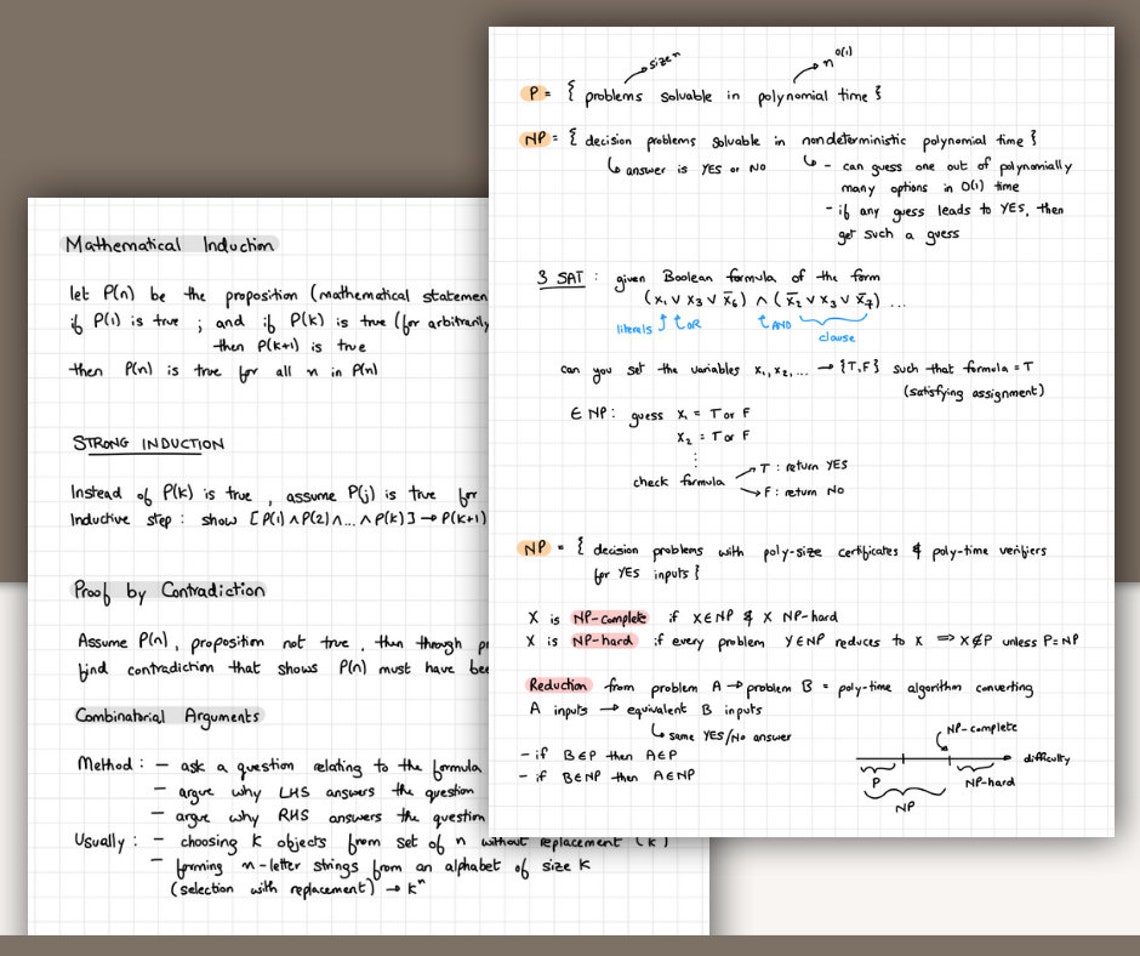 Mathematical Induction
let P(n) be the proposition (mathematical statemen
if P(1) is true ; and if P(k) is true (for arbitrarily
then P(k+1) is true
then P(n) is true for all n in P(n)
STRONG INDUCTION
Instead of P(k) is true , assume P(j) is true for
Inductive step : show [P(1) ∧ P(2) ∧ ... ∧ P(k)] → P(k+1)
Proof by Contradiction
Assume P(n), proposition not true, then through
find contradiction that shows P(n) must have bee
Combinatorial Arguments
Method : - ask a question relating to the formula
- argue why LHS answers the question
- argue why RHS answers the question
Usually : - choosing k objects from set of n without replacement (k)
- forming n-letter strings from an alphabet of size k
(selection with replacement) → kⁿ
size n
n^O(1)
P = { problems solvable in polynomial time }
NP = { decision problems solvable in nondeterministic polynomial time }
↳ answer is YES or NO
↳ - can guess one out of polynomially
many options in O(1) time
- if any guess leads to YES, then
get such a guess
3 SAT : given Boolean formula of the form
(x₁ ∨ x₃ ∨ x̄₆) ∧ (x̄₂ ∨ x₃ ∨ x̄₇) ...
literals OR AND
clause
can you set the variables x₁, x₂, ... → {T,F} such that formula = T
(satisfying assignment)
∈ NP : guess x₁ = T or F
x₂ = T or F
⋮
check formula
T : return YES
F : return NO
NP = { decision problems with poly-size certificates & poly-time verifiers
for YES inputs }
X is NP-complete if X∈NP & X NP-hard
X is NP-hard if every problem Y∈NP reduces to X ⟹ X∉P unless P=NP
Reduction from problem A → problem B = poly-time algorithm converting
A inputs → equivalent B inputs
↳ same YES/NO answer
- if B∈P then A∈P
- if B∈NP then A∈NP
NP-complete
difficulty
P
NP-hard
NP